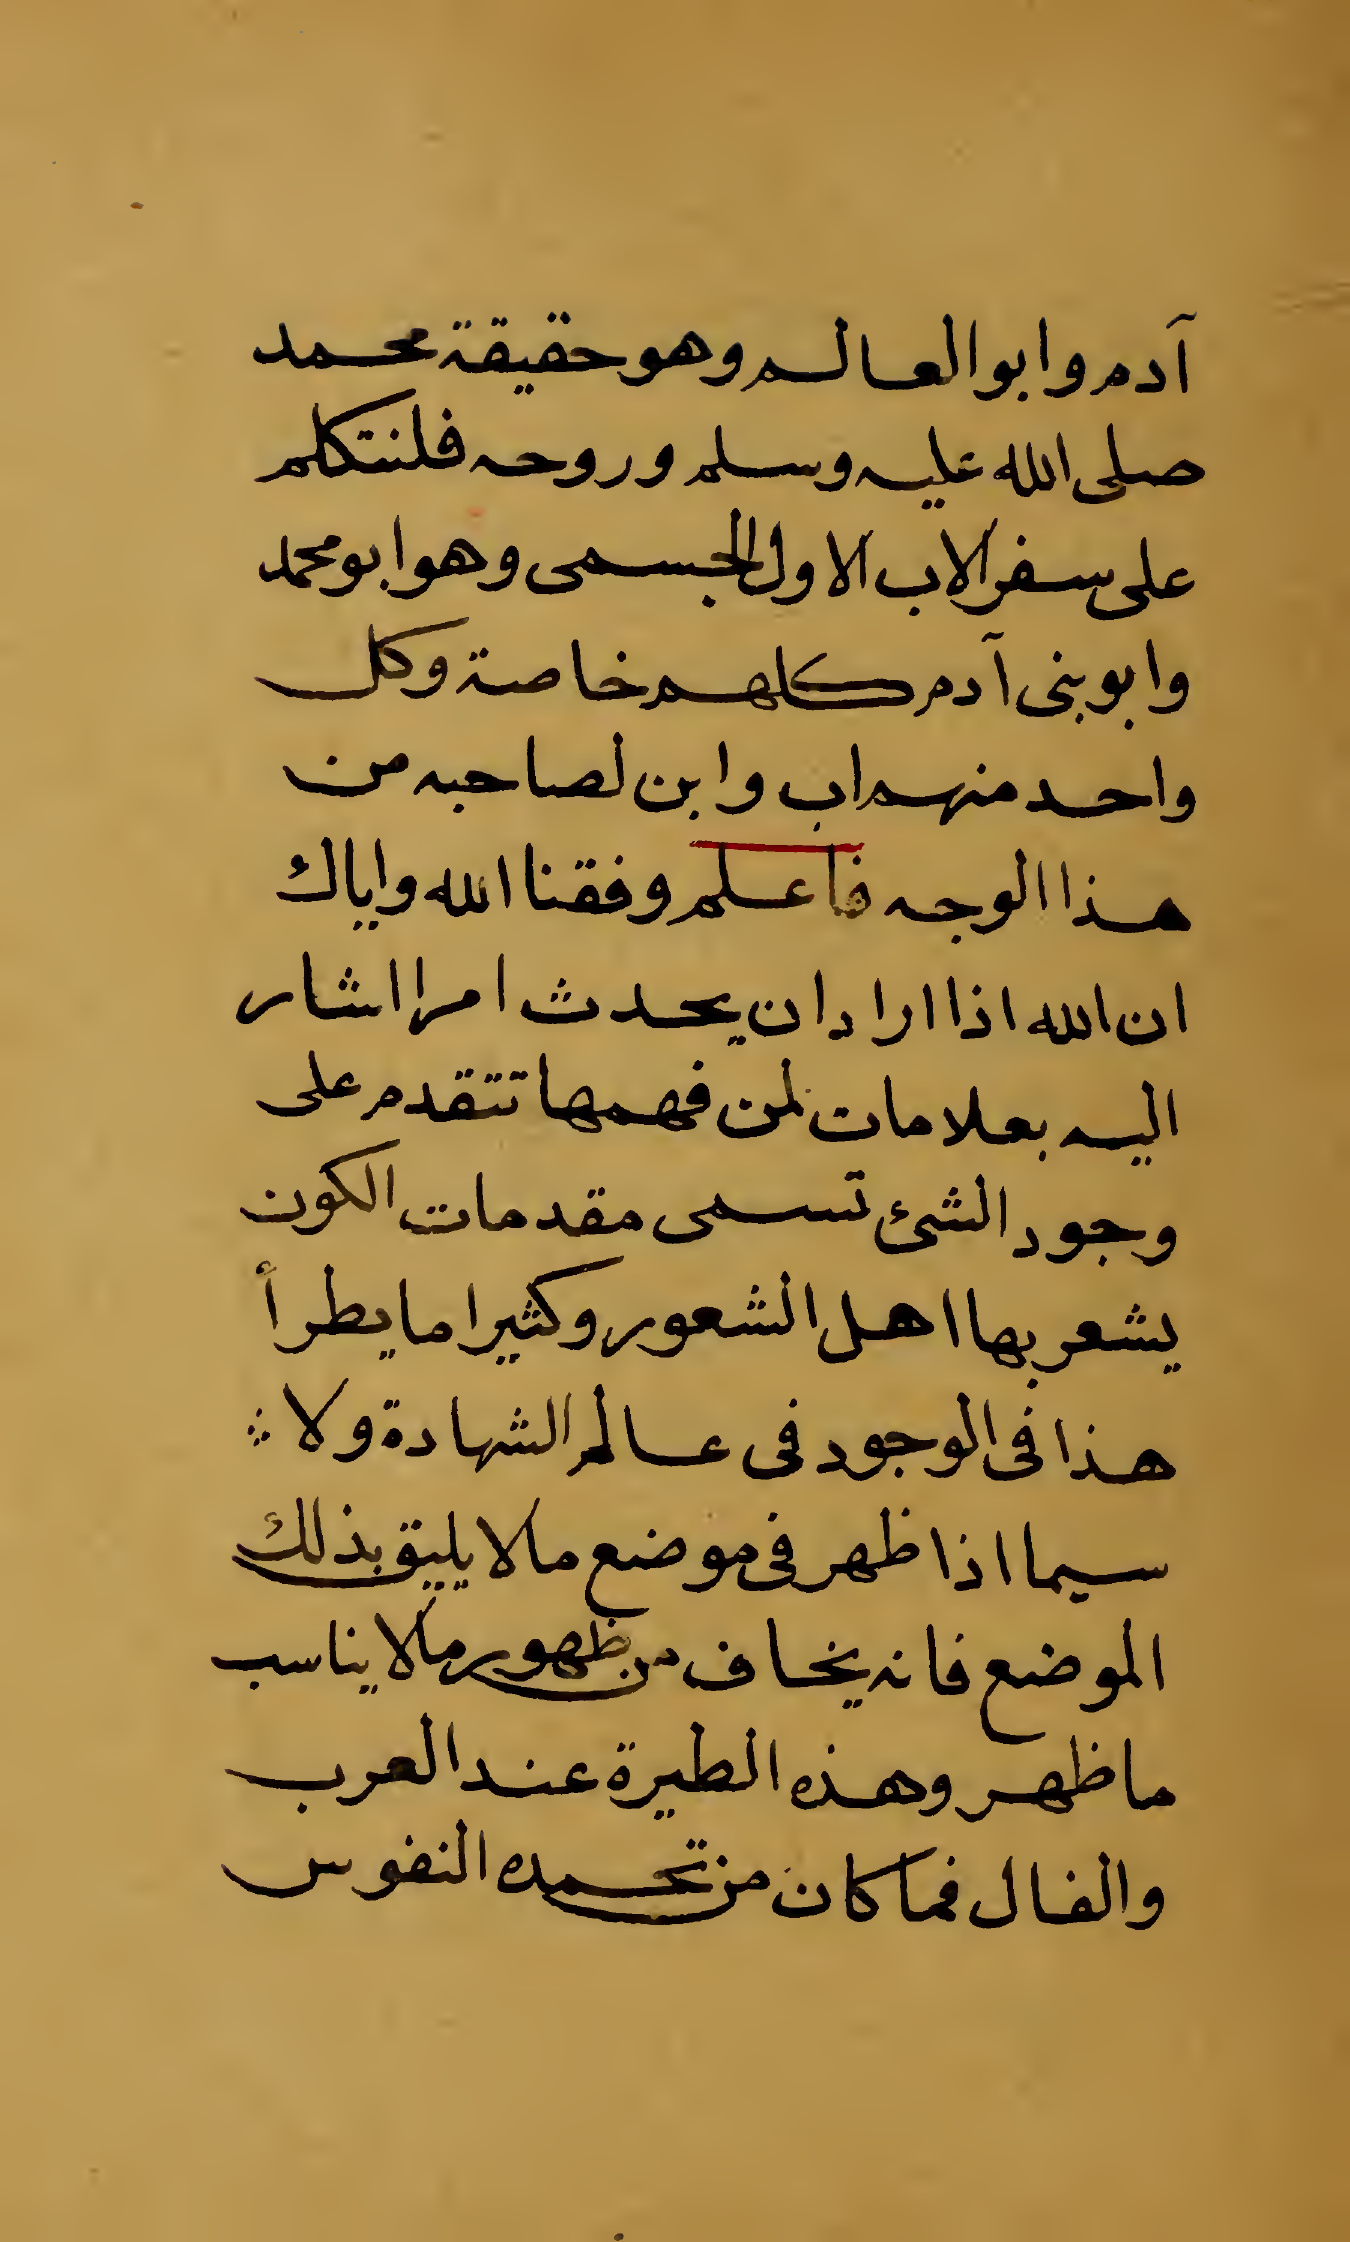 آدم وابو العالم وهو حقيقة محمد
صلى الله عليه وسلم وروحه فلنتكلم
على سفر الاب الاول الجسمى وهو ابو محمد
وابو بنى آدم كلهم خاصة وكل
واحد منهم اب وابن لصاحبه من
هذا الوجه فاعلم وفقنا الله واياك
ان الله اذا اراد ان يحدث امرا اشار
اليه بعلامات لمن فهمها تتقدم على
وجود الشئ تسمى مقدمات الكون
يشعر بها اهل الشعور وكثيرا ما يطرأ
هذا فى الوجود فى عالم الشهادة ولا
سيما اذا ظهر فى موضع مالا يليق بذلك
الموضع فانه يخاف من ظهور مالا يناسب
ما ظهر وهذه الطيرة عند العرب
والفال فما كان من تحمده النفوس